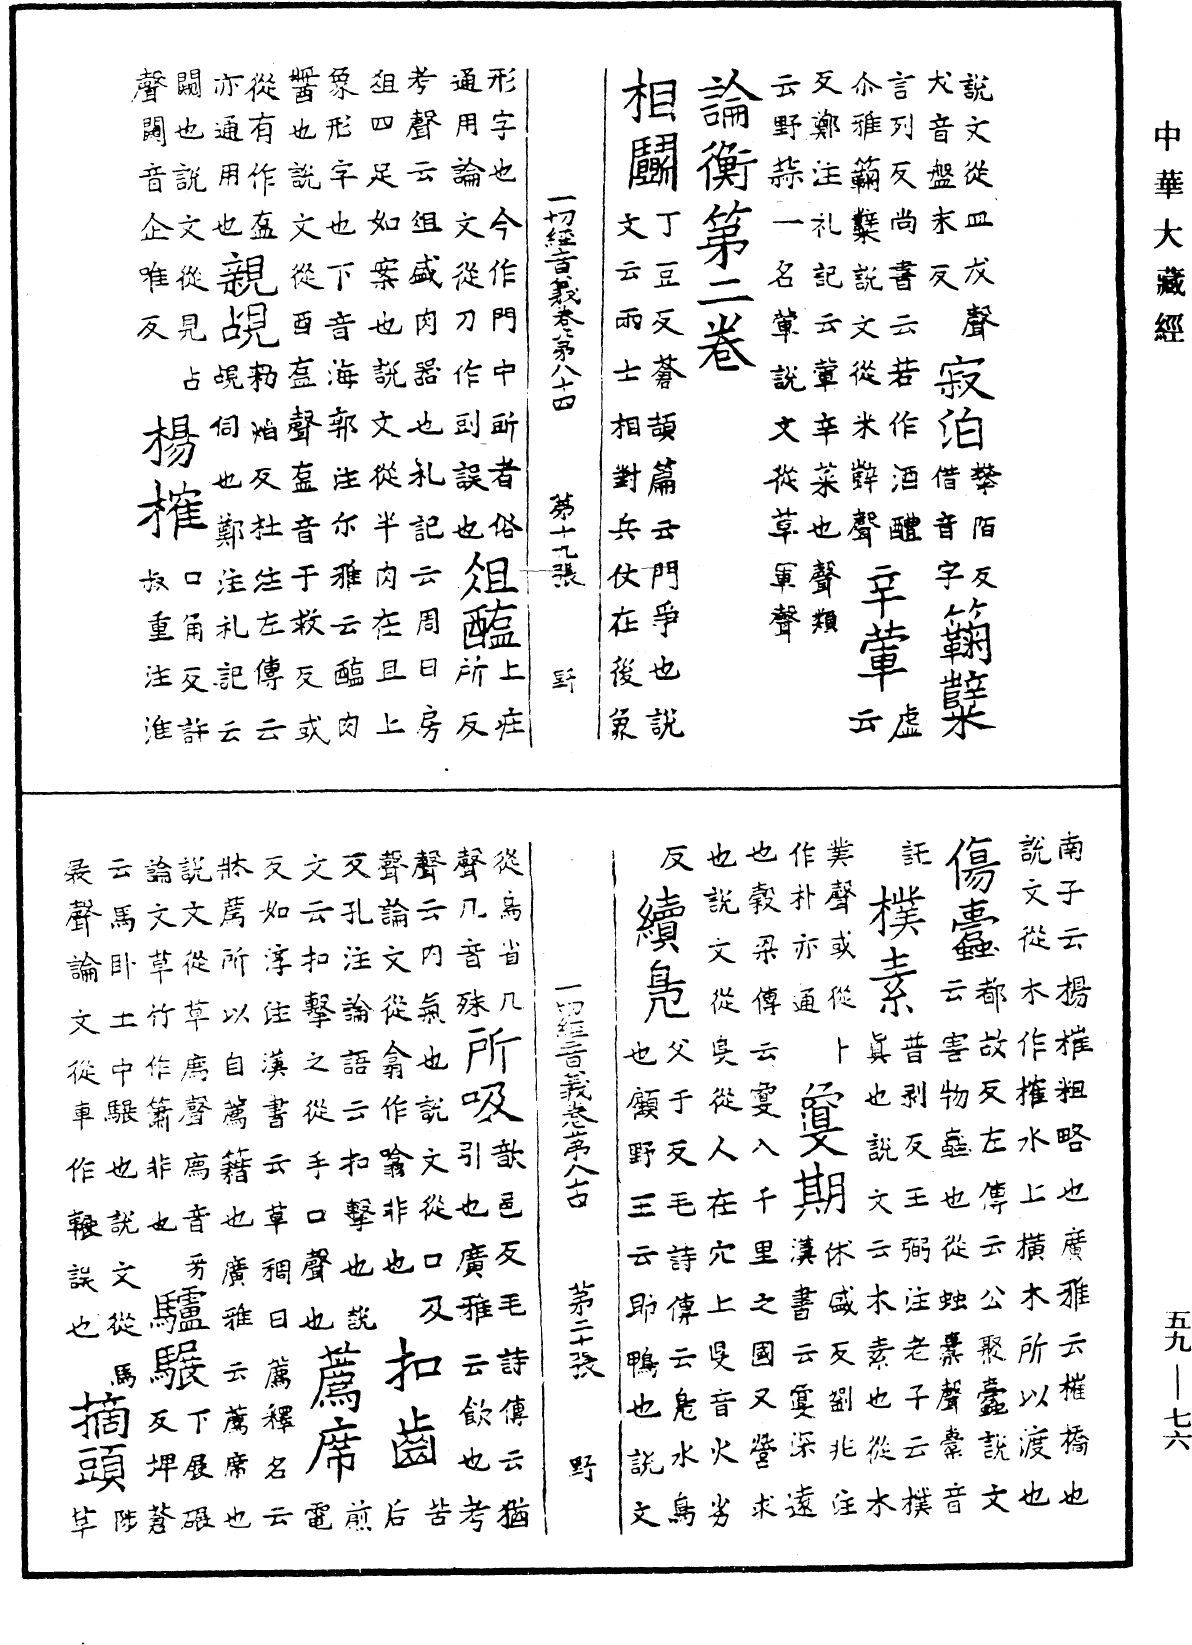 中華大藏經
說文從皿戉聲寂泊拳陌反𥷚糱
犬音盤末反借音字
言列反尚書云若作酒醴
尒雅𥷚糱說文從米辥聲辛葷虛云
反鄭注礼記云葷辛菜也聲類
云野蒜一名葷說文從草軍聲
論衡第二卷
相鬭丁豆反蒼頡篇云鬥爭也說
文云兩士相對兵仗在後象
一切經音義卷第八十四 第十九張 野
形字也今作門中斲者俗俎醢上庄
通用論文從刀作剅誤也所反
考聲云俎盛肉器也礼記云周曰房
俎四足如案也說文從半肉在且上
象形字也下音海郭注尔雅云醢肉
醬也說文從酉𥁕聲𥁕音于救反或
從有作𥁓親覘勑焰反杜注左傳云
亦通用也覘伺也鄭注礼記云
闚也說文從見占楊搉口角反許
聲闚音企唯反叔重注淮
南子云揚搉粗略也廣雅云搉橋也
說文從木作榷水上橫木所以渡也
傷蠹都故反左傳云公聚蠹說文
云害物蟲也從䖵橐聲橐音
託樸素普剥反王弼注老子云樸
真也說文云木素也從木
業聲或從卜敻期休盛反劉兆注
作朴亦通漢書云敻深遠
也穀梁傳云敻入千里之國又營求
也說文從㕛從人在穴上㕛音火劣
反續鳧父于反毛詩傳云鳧水鳥
也顧野王云即鴨也說文
一切經音義卷第八十四 第二十張 野
從鳥省几所吸歆邑反毛詩傳云猶
聲几音殊引也廣雅云飲也考
聲云內氣也說文從口及扣齒苦
聲論文從翕作噏非也后
反孔注論語云扣擊也說薦席煎
文云扣擊之從手口聲也電
反如淳注漢書云草稠曰薦釋名云
牀薦所以自薦籍也廣雅云薦席也
說文從草廌聲廌音豸驢𩥇下展碾
論文草竹作𥳑非也反埤蒼
云馬卧土中𩥇也說文從馬摘頭陟
㞡聲論文從車作輾誤也革
五九—七六